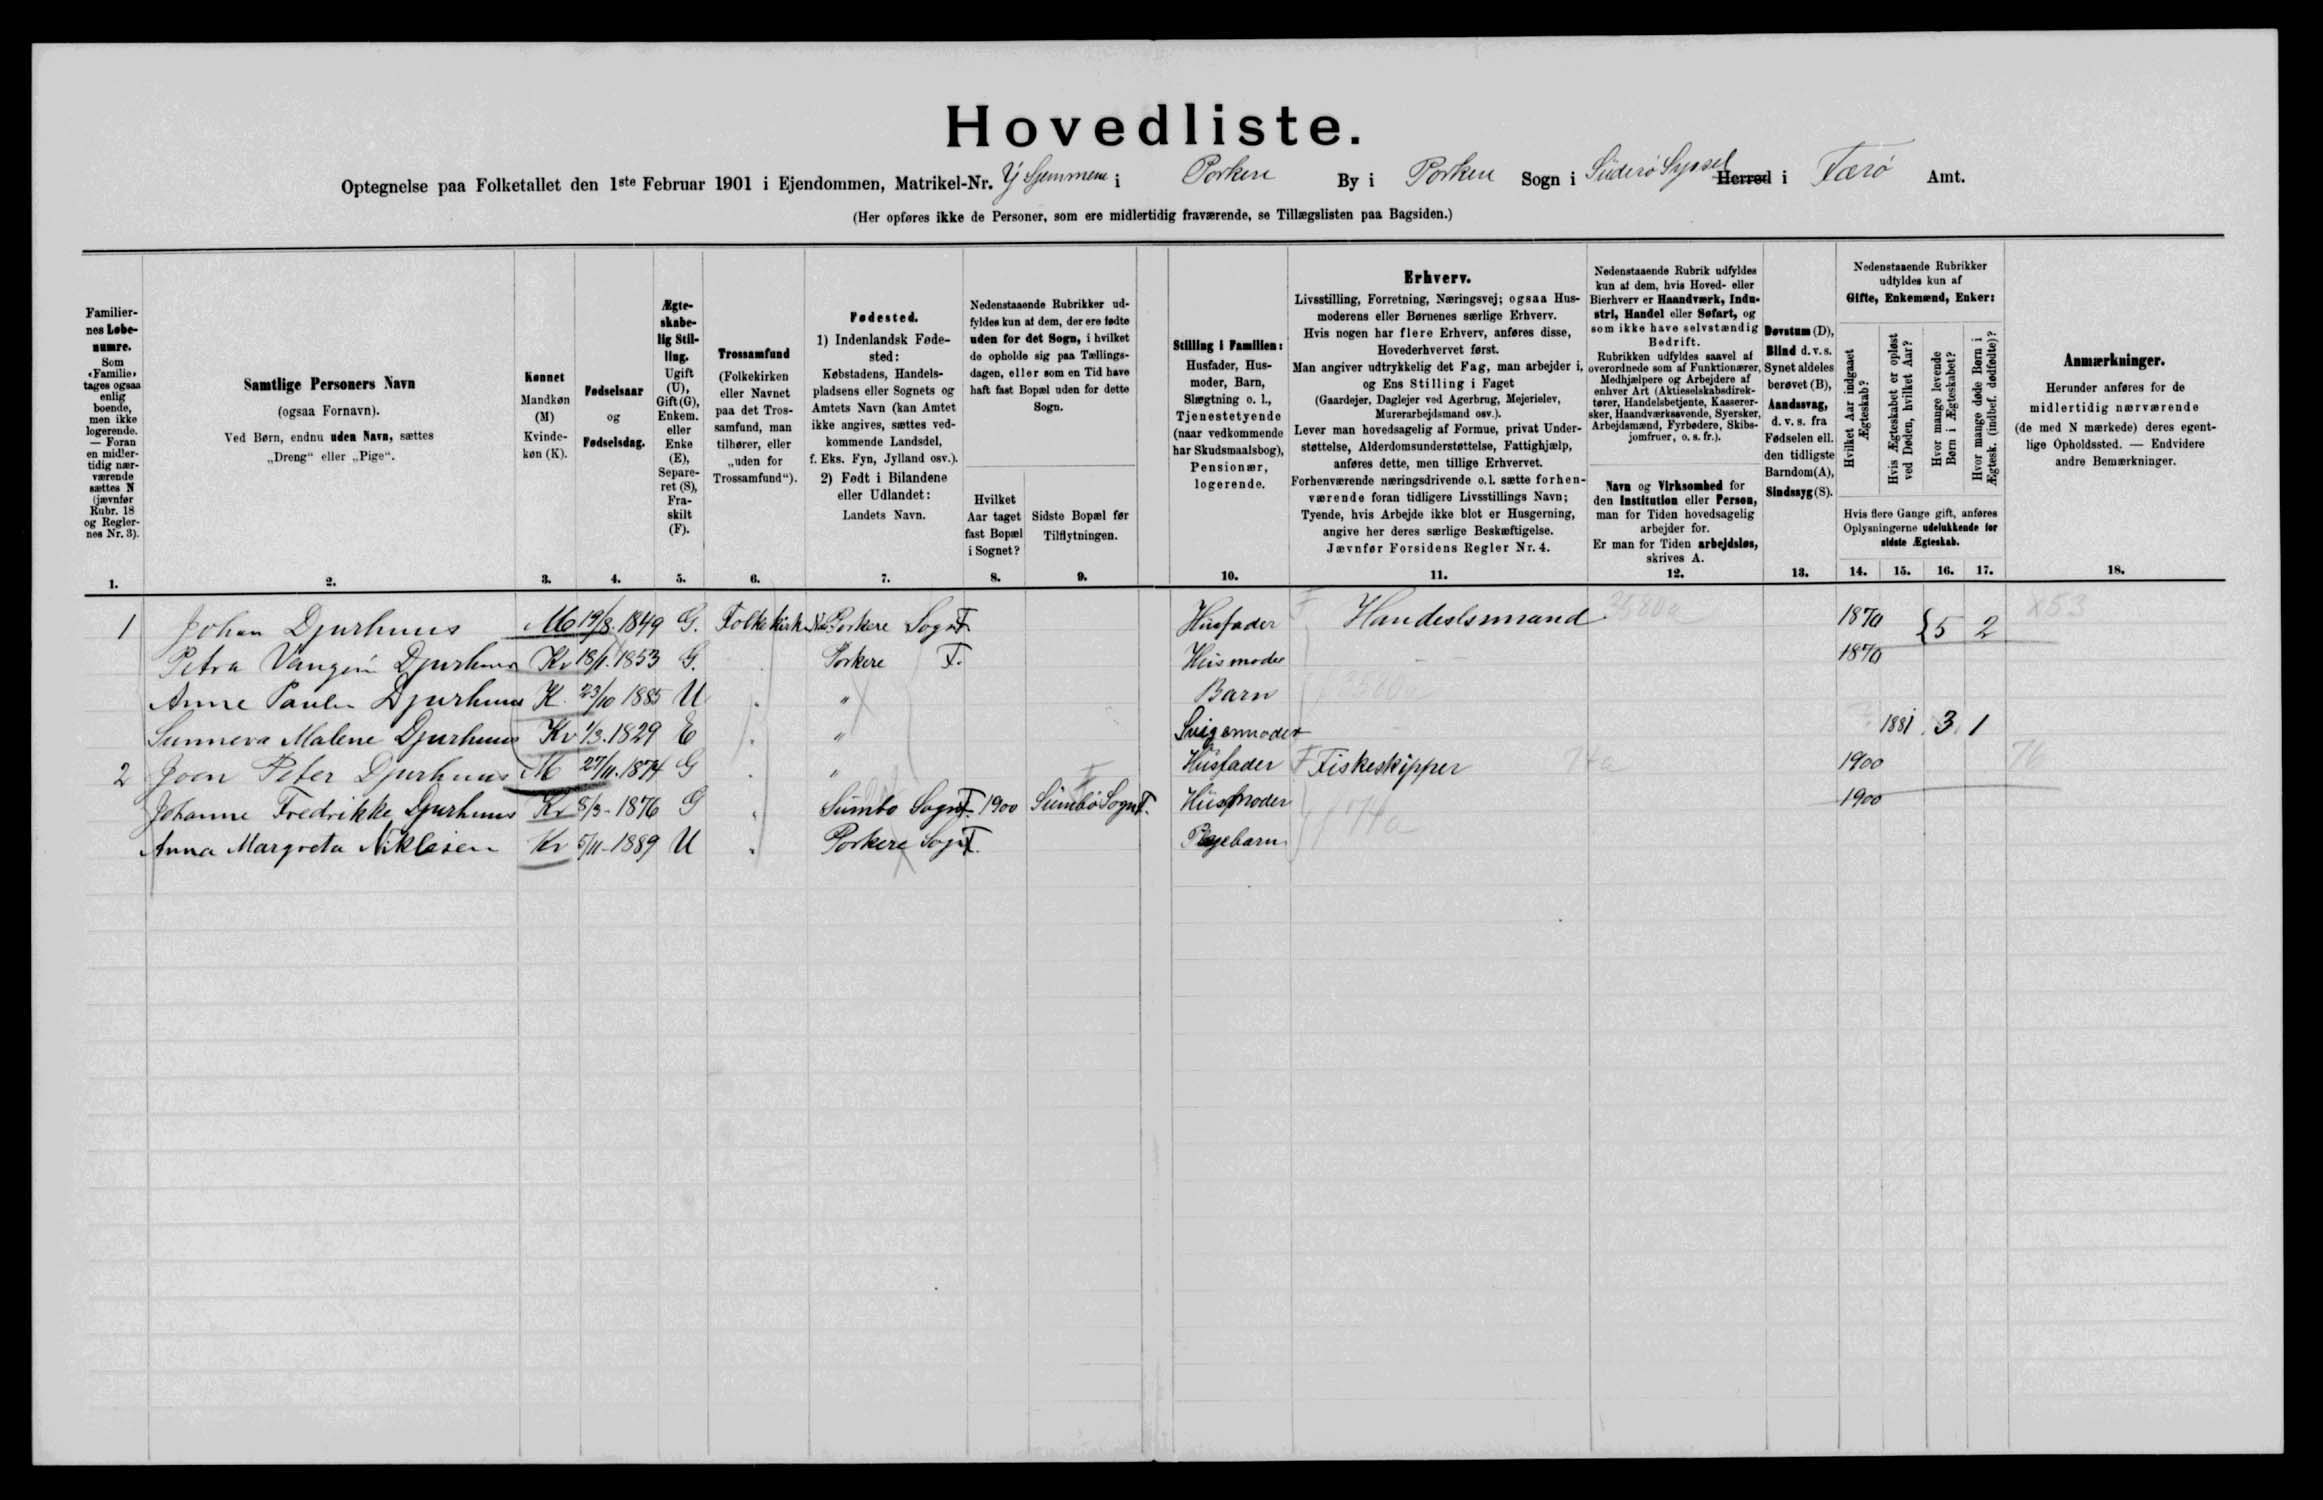 Hovedliste.
Optegnelse paa Folketallet den 1ste Februar 1901 i Ejendommen, Matrikel-Nr. i Porkere By i Porkere Sogn i Süderø Syssel Herred i Færø Amt.
(Her opføres ikke de Personer, som ere midlertidig fraværende, se Tillægslisten paa Bagsiden.)
Familiernes Løbenumre. Som «Familie» tages ogsaa enlig boende, men ikke logerende. — Foran en midlertidig nærværende sættes N (jævnfør Rubr. 18 og Reglernes Nr. 3).
Samtlige Personers Navn
(ogsaa Fornavn).
Ved Børn, endnu uden Navn, sættes
„Dreng“ eller „Pige“.
Kønnet
Mandkøn
(M)
Kvindekøn (K).
Fødselsaar
og
Fødselsdag.
Ægteskabelig Stilling. Ugift (U), Gift (G), Enkem. eller Enke (E), Separeret (S), Fraskilt (F).
Trossamfund
(Folkekirken eller Navnet paa det Trossamfund, man tilhører, eller „uden for Trossamfund“).
Fødested.
1) Indenlandsk Fødested:
Købstadens, Handelspladsens eller Sognets og Amtets Navn (kan Amtet ikke angives, sættes vedkommende Landsdel, f. Eks. Fyn, Jylland osv.).
2) Født i Bilandene eller Udlandet:
Landets Navn.
Nedenstaaende Rubrikker udfyldes kun af dem, der ere fødte uden for det Sogn, i hvilket de opholde sig paa Tællingsdagen, eller som en Tid have haft fast Bopæl uden for dette Sogn.
Hvilket Aar taget fast Bopæl i Sognet?
Sidste Bopæl før Tilflytningen.
Stilling i Familien:
Husfader, Husmoder, Barn, Slægtning o. l., Tjenestetyende (naar vedkommende har Skudsmaalsbog), Pensionær, logerende.
Erhverv.
Livsstilling, Forretning, Næringsvej; ogsaa Husmoderens eller Børnenes særlige Erhverv.
Hvis nogen har flere Erhverv, anføres disse, Hovederhvervet først.
Man angiver udtrykkelig det Fag, man arbejder i, og Ens Stilling i Faget
(Gaardejer, Daglejer ved Agerbrug, Mejerielev, Murerarbejdsmand osv.).
Lever man hovedsagelig af Formue, privat Understøttelse, Alderdomsunderstøttelse, Fattighjælp, anføres dette, men tillige Erhvervet.
Forhenværende næringsdrivende o. l. sætte forhenværende foran tidligere Livsstillings Navn;
Tyende, hvis Arbejde ikke blot er Husgerning, angive her deres særlige Beskæftigelse.
Jævnfør Forsidens Regler Nr. 4.
Nedenstaaende Rubrik udfyldes kun af dem, hvis Hoved- eller Bierhverv er Haandværk, Industri, Handel eller Søfart, og som ikke have selvstændig Bedrift.
Rubrikken udfyldes saavel af overordnede som af Funktionærer, Medhjælpere og Arbejdere af enhver Art (Aktieselskabsdirektører, Handelsbetjente, Kasserersker, Haandværkssvende, Syersker, Arbejdsmænd, Fyrbødere, Skibsjomfruer, o. s. fr.).
Navn og Virksomhed for den Institution eller Person, man for Tiden hovedsagelig arbejder for.
Er man for Tiden arbejdsløs, skrives A.
Døvstum (D), Blind d. v. s. Synet aldeles berøvet (B), Aandssvag, d. v. s. fra Fødselen ell. den tidligste Barndom (A), Sindssyg (S).
Nedenstaaende Rubrikker udfyldes kun af
Gifte, Enkemænd, Enker:
Hvilket Aar indgaaet Ægteskab?
Hvis Ægteskabet er opløst ved Døden, hvilket Aar?
Hvor mange levende Børn i Ægteskabet?
Hvor mange døde Børn i Ægtesk. (indbef. dødfødte)?
Hvis flere Gange gift, anføres Oplysningerne udelukkende for sidste Ægteskab.
Anmærkninger.
Herunder anføres for de midlertidig nærværende (de med N mærkede) deres egentlige Opholdssted. — Endvidere andre Bemærkninger.
1. 2. 3. 4. 5. 6. 7. 8. 9. 10. 11. 12. 13. 14. 15. 16. 17. 18.
1 Johan Djurhuus M 19/8. 1849 G. Folkekirken Porkere Sogn F. Husfader F Handeslsmand 3580a 1870 { 5 2 X53
Petra Djurhuus Kv 18/1. 1853 G. Porkere F. Husmoder 1870
Anne Djurhuus K. 23/10 1885 U " " Barn
Sunneva Malene Djurhuus Kv 1/3. 1829 E " " Svigermoder 1881 3 1
2 Joen Peter Djurhuus M 27/11. 1874 G " " Husfader F Fiskeskipper 74a 1900 76
Johanne Fredrikke Djurhuus Kv 8/3- 1876 G " Sumbø Sogn F. 1900 Sumbø Sogn F. Husmoder 1900
Anna Margreta Niklasen Kv 5/11- 1889 U " Porkere Sogn F. Plejebarn 74a